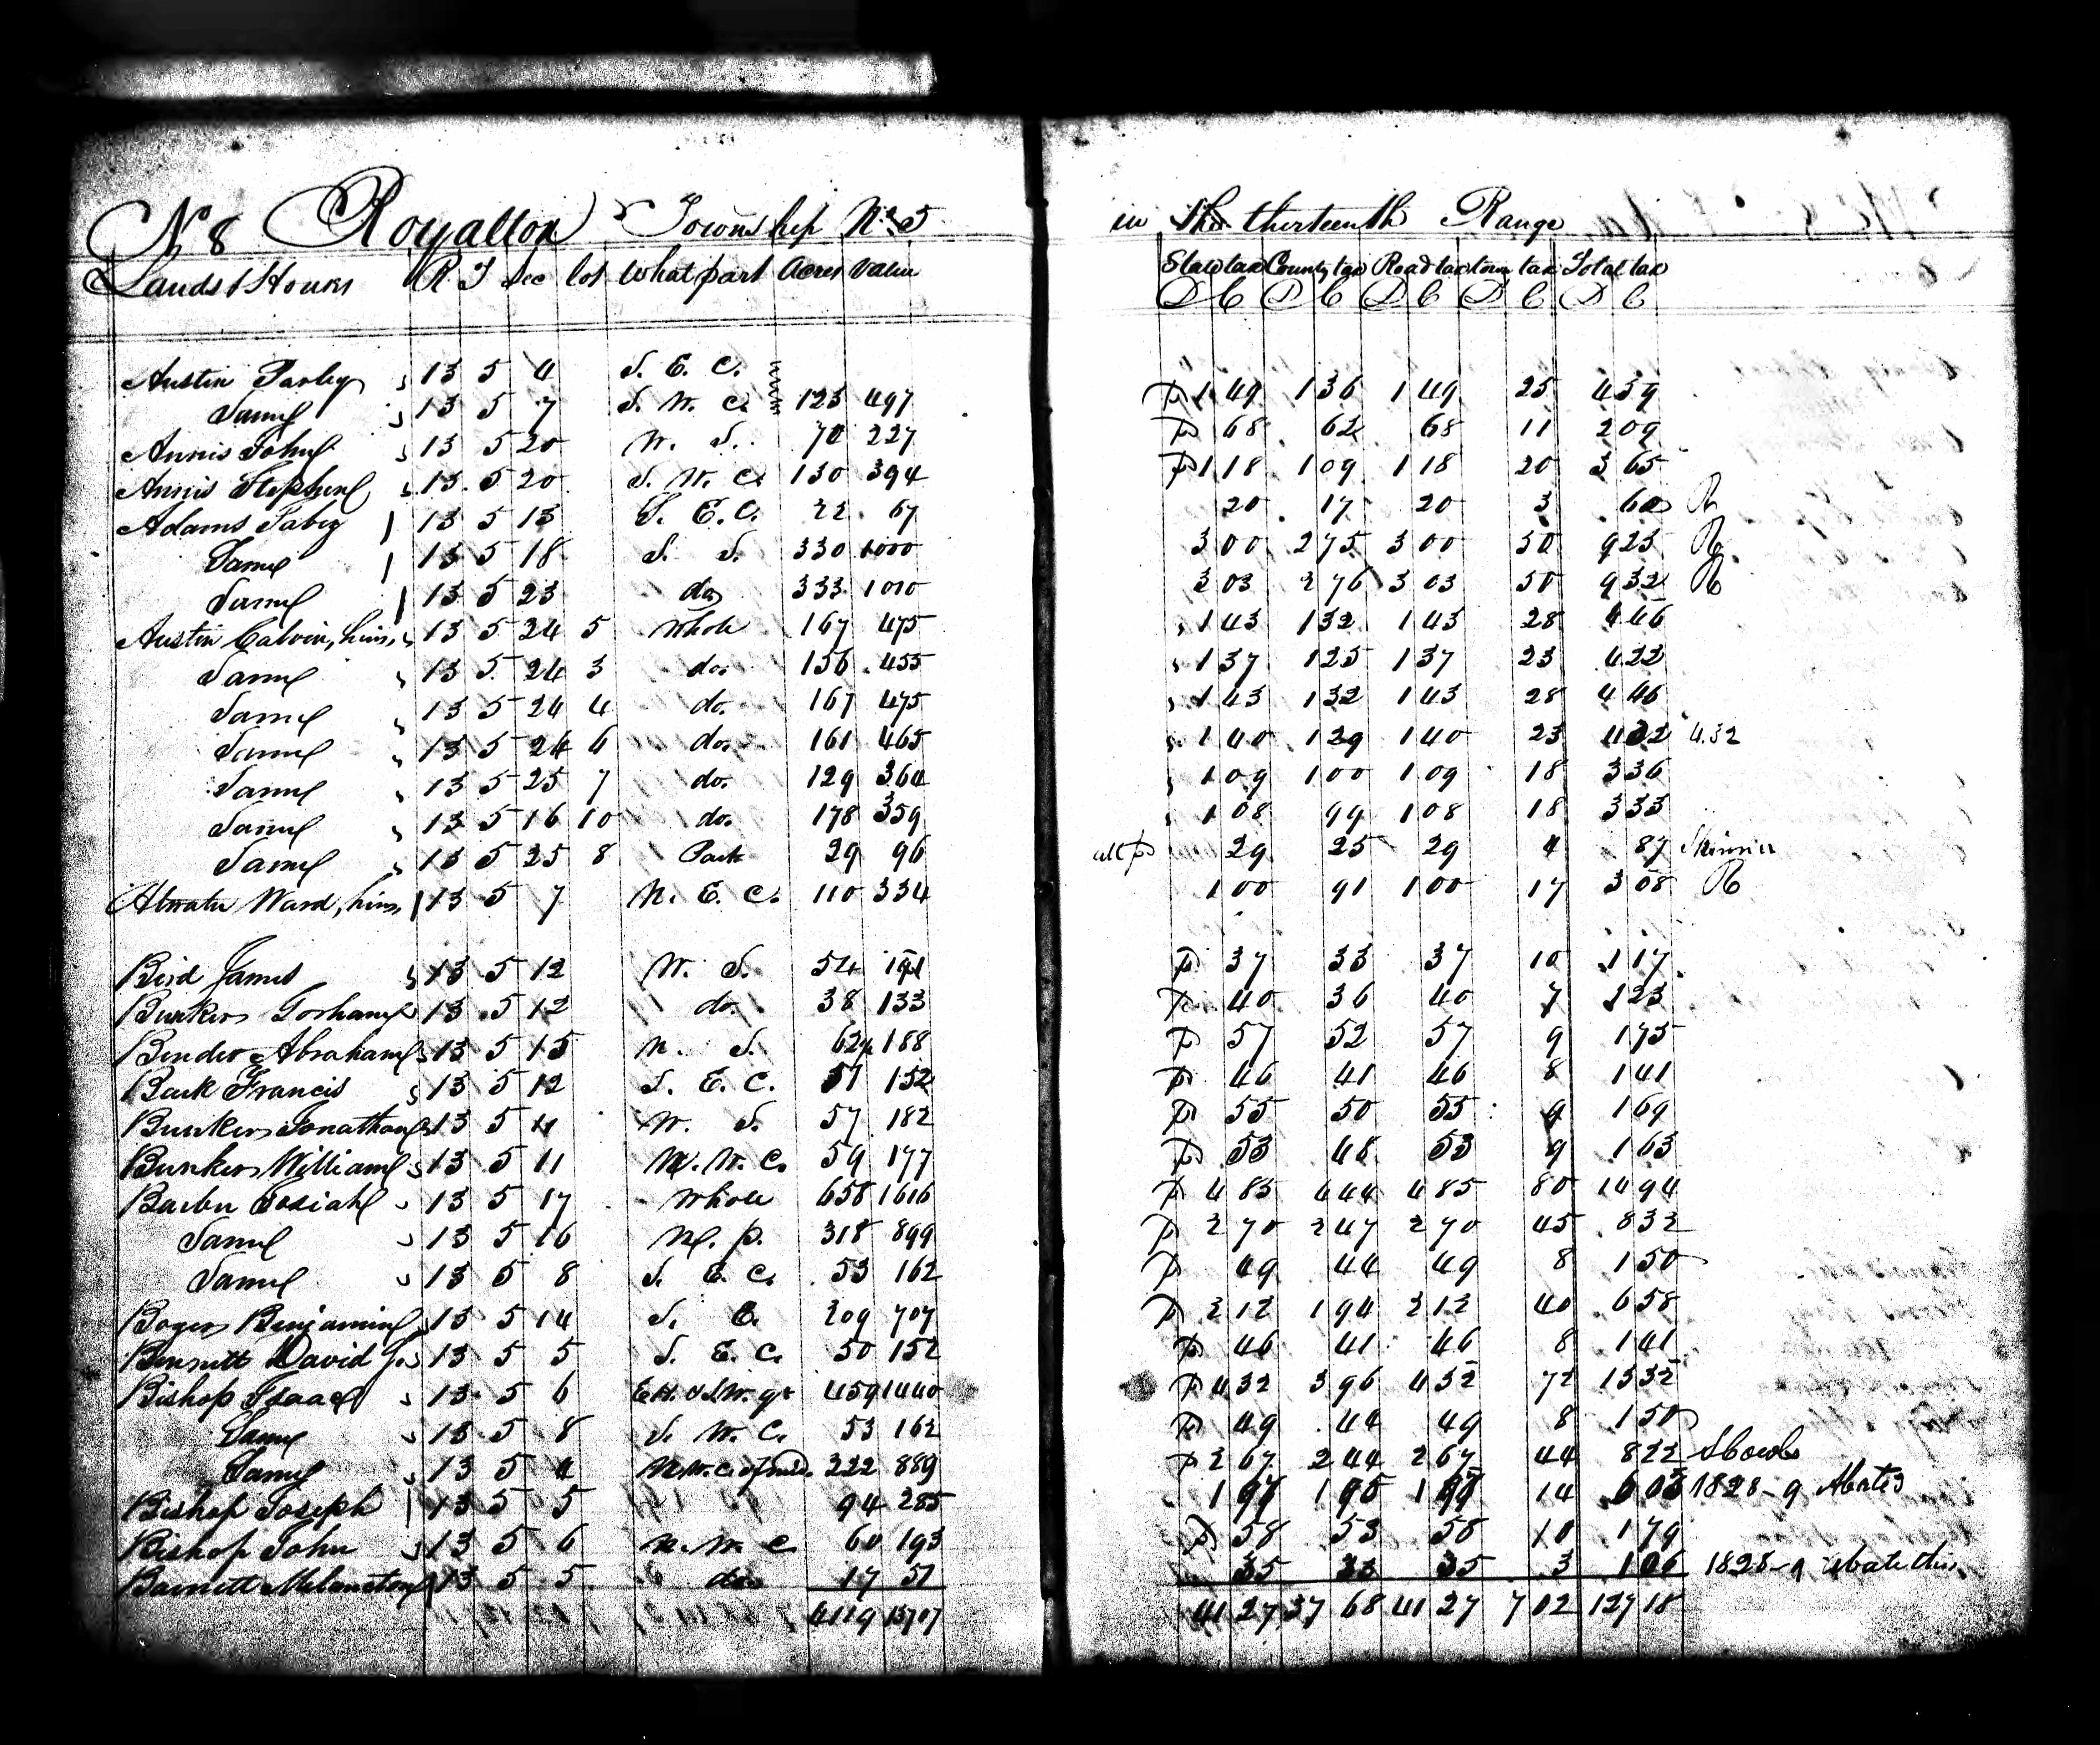 No 8 Royalton Township No 5 in the thirteenth Range
Lands & Houses R T Sec lot What part Acres Value State tax County tax Road tax town tax Total tax
D C D C D C D C D C
Austin Parley 13 5 4 S. E. C.
Same 13 5 7 S. W. C. 123 497 p 1 49 1 36 1 49 25 4 59
Annis John 13 5 20 W. S. 70 227 p 68 62 68 11 2 09
Annis Stephen 13 5 20 S. W. C. 130 394 p 1 18 1 09 1 18 20 3 65
Adams Jabez 13 5 13 S. E. C. 22 67 20 17 20 3 60 R
Same 13 5 18 S. S. 330 1000 3 00 2 75 3 00 50 9 25 R
Same 13 5 23 do 333 1010 3 03 2 76 3 03 50 9 32 R
Austin Calvin, heirs, 13 5 24 5 whole 167 475 1 43 1 32 1 43 28 4 46
Same 13 5 24 3 do. 156 455 1 37 1 25 1 37 23 4 22
Same 13 5 24 4 do. 167 475 1 43 1 32 1 43 28 4 46
Same 13 5 24 6 do. 161 465 1 40 1 29 1 40 23 4 32 4.32
Same 13 5 25 7 do. 129 364 1 09 1 00 1 09 18 3 36
Same 13 5 16 10 do. 178 359 1 08 99 1 08 18 3 33
Same 13 5 25 8 Part 29 96 all p 29 25 29 4 87 Skinner
Atwater Ward, heirs, 13 5 7 N. E. C. 110 334 1 00 91 1 00 17 3 08 R
Bird James 13 5 12 W. S. 54 121 p 37 33 37 10 1 17
Bunker Gorham 13 5 12 do. 38 133 p 40 36 40 7 1 23
Bender Abraham 13 5 15 N. S. 62½ 188 p 57 52 57 9 1 75
Bark Francis 13 5 12 S. E. C. 51 152 p 46 41 46 8 1 41
Bunker Jonathan 13 5 11 W. S. 57 182 p 55 50 55 9 1 69
Bunker William 13 5 11 N. W. C. 59 177 p 53 48 53 9 1 63
Barber Josiah 13 5 17 whole 658 1616 p 4 85 4 44 4 85 80 14 94
Same 13 5 16 N. p. 318 899 p 2 70 2 47 2 70 45 8 32
Same 13 5 8 S. E. C. 53 162 p 49 44 49 8 1 50
Boger Benjamin 13 5 14 S. E. 209 707 p 2 12 1 94 2 12 40 6 58
Bennett David Jr 13 5 5 S. E. C. 50 152 p 46 41 46 8 1 41
Bishop Isaac 13 5 6 E. H. & S W. qr 459 1440 p 4 32 3 96 4 32 72 13 32
Same 13 5 8 S. W. C. 53 162 p 49 44 49 8 1 50
Same 13 5 4 N W. C. of mid. 222 889 p 2 67 2 44 2 67 44 8 22
Bishop Joseph 13 5 5 94 285 14 1828-9
Bishop John 13 5 6 N. W. C 60 193 p 58 53 58 10 1 79
Barnett Melancton 13 5 5 do 17 51 35 33 35 3 1 06 1828-9 abate this
4119 13707 41 27 37 68 41 27 7 02 127 18